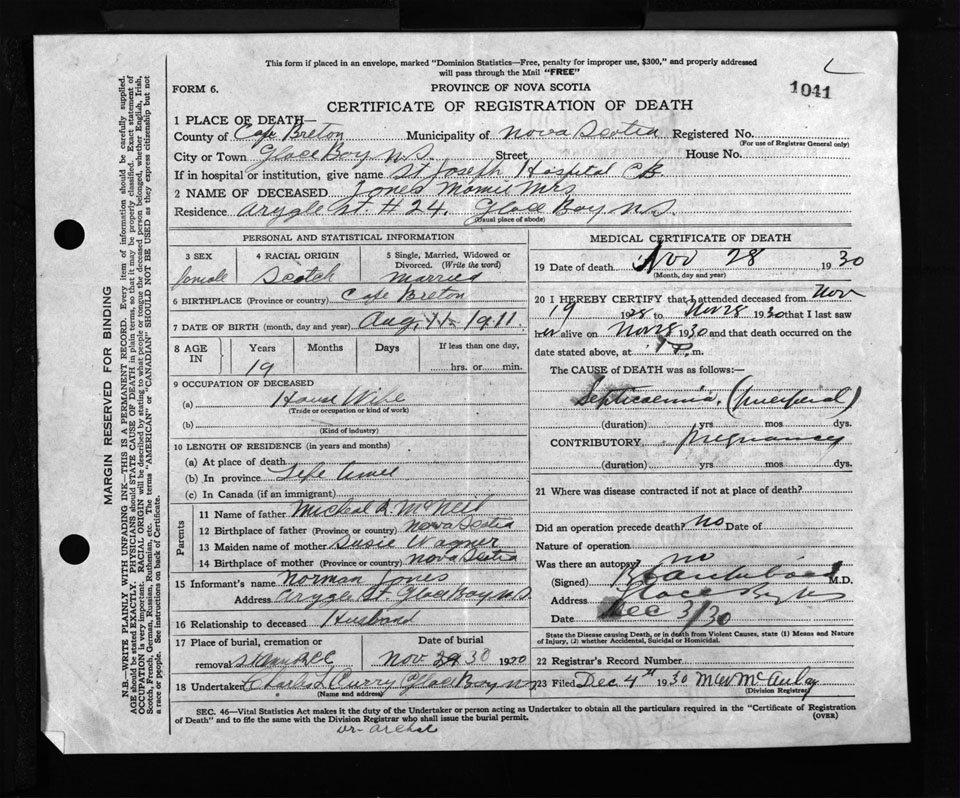 This form if placed in an envelope, marked "Dominion Statistics—Free, penalty for improper use, $300," and properly addressed
will pass through the Mail "FREE"
FORM 6.
PROVINCE OF NOVA SCOTIA
1041
CERTIFICATE OF REGISTRATION OF DEATH
1 PLACE OF DEATH—
County of Cape Breton Municipality of Nova Scotia Registered No.
(For use of Registrar General only)
City or Town Glace Bay N.S. Street House No.
If in hospital or institution, give name St Joseph Hospital CB.
2 NAME OF DECEASED Jones Mamie Mrs
Residence Argyle St. #24. Glace Bay N.S.
(Usual place of abode)
PERSONAL AND STATISTICAL INFORMATION
3 SEX 4 RACIAL ORIGIN 5 Single, Married, Widowed or
Divorced. (Write the word)
female Scotch Married
6 BIRTHPLACE (Province or country) Cape Breton
7 DATE OF BIRTH (month, day and year) Aug. 11. 1911.
8 AGE IN Years Months Days If less than one day,
19 hrs. or min.
9 OCCUPATION OF DECEASED
(a) House Wife
(Trade or occupation or kind of work)
(b)
(Kind of industry)
10 LENGTH OF RESIDENCE (in years and months)
(a) At place of death
(b) In province Life time
(c) In Canada (if an immigrant)
Parents
11 Name of father Micheal R. McNeil
12 Birthplace of father (Province or country) Nova Scotia
13 Maiden name of mother Susie Wagner
14 Birthplace of mother (Province or country) Nova Scotia
15 Informant's name Norman Jones
Address Argyle St Glace Bay N.S
16 Relationship to deceased Husband
17 Place of burial, cremation or Date of burial
removal Nov. 30 1930
18 Undertaker Charles L Curry Glace Bay N.S
(Name and address)
MEDICAL CERTIFICATE OF DEATH
19 Date of death Nov 28 1930
(Month, day and year)
20 I HEREBY CERTIFY that I attended deceased from Nov
19 1928 to Nov 28 1930 that I last saw
her alive on Nov 28 1930 and that death occurred on the
date stated above, at P. m.
The CAUSE of DEATH was as follows:—
Septicaemia. (Puerperal)
(duration) yrs mos dys.
CONTRIBUTORY pregnancy
(duration) yrs. mos. dys.
21 Where was disease contracted if not at place of death?
Did an operation precede death? no Date of
Nature of operation
Was there an autopsy? no
(Signed) M.D.
Address Glace Bay NS
Date Dec 3/30
State the Disease causing Death, or in death from Violent Causes, state (1) Means and Nature
of Injury, (2) whether Accidental, Suicidal or Homicidal.
22 Registrar's Record Number
23 Filed Dec 4th 1930 McAulay
(Division Registrar)
SEC. 46—Vital Statistics Act makes it the duty of the Undertaker or person acting as Undertaker to obtain all the particulars required in the "Certificate of Registration
of Death" and to file the same with the Division Registrar who shall issue the burial permit.
(OVER)
Dr.
MARGIN RESERVED FOR BINDING
N.B.—WRITE PLAINLY WITH UNFADING INK—THIS IS A PERMANENT RECORD. Every item of information should be carefully supplied.
AGE should be stated EXACTLY. PHYSICIANS should STATE CAUSE OF DEATH in plain terms, so that it may be properly classified. Exact statement of
OCCUPATION is very important. RACIAL ORIGIN will be described by stating to what people or tongue the deceased person belonged, whether English, Irish,
Scotch, French, German, Russian, Ruthenian, etc. The terms "AMERICAN" or "CANADIAN" SHOULD NOT BE USED as they express citizenship but not
a race or people. See instructions on back of Certificate.